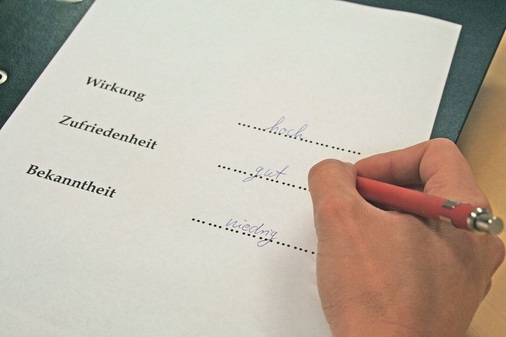 Wirkung hoch
Zufriedenheit gut
Bekanntheit niedrig